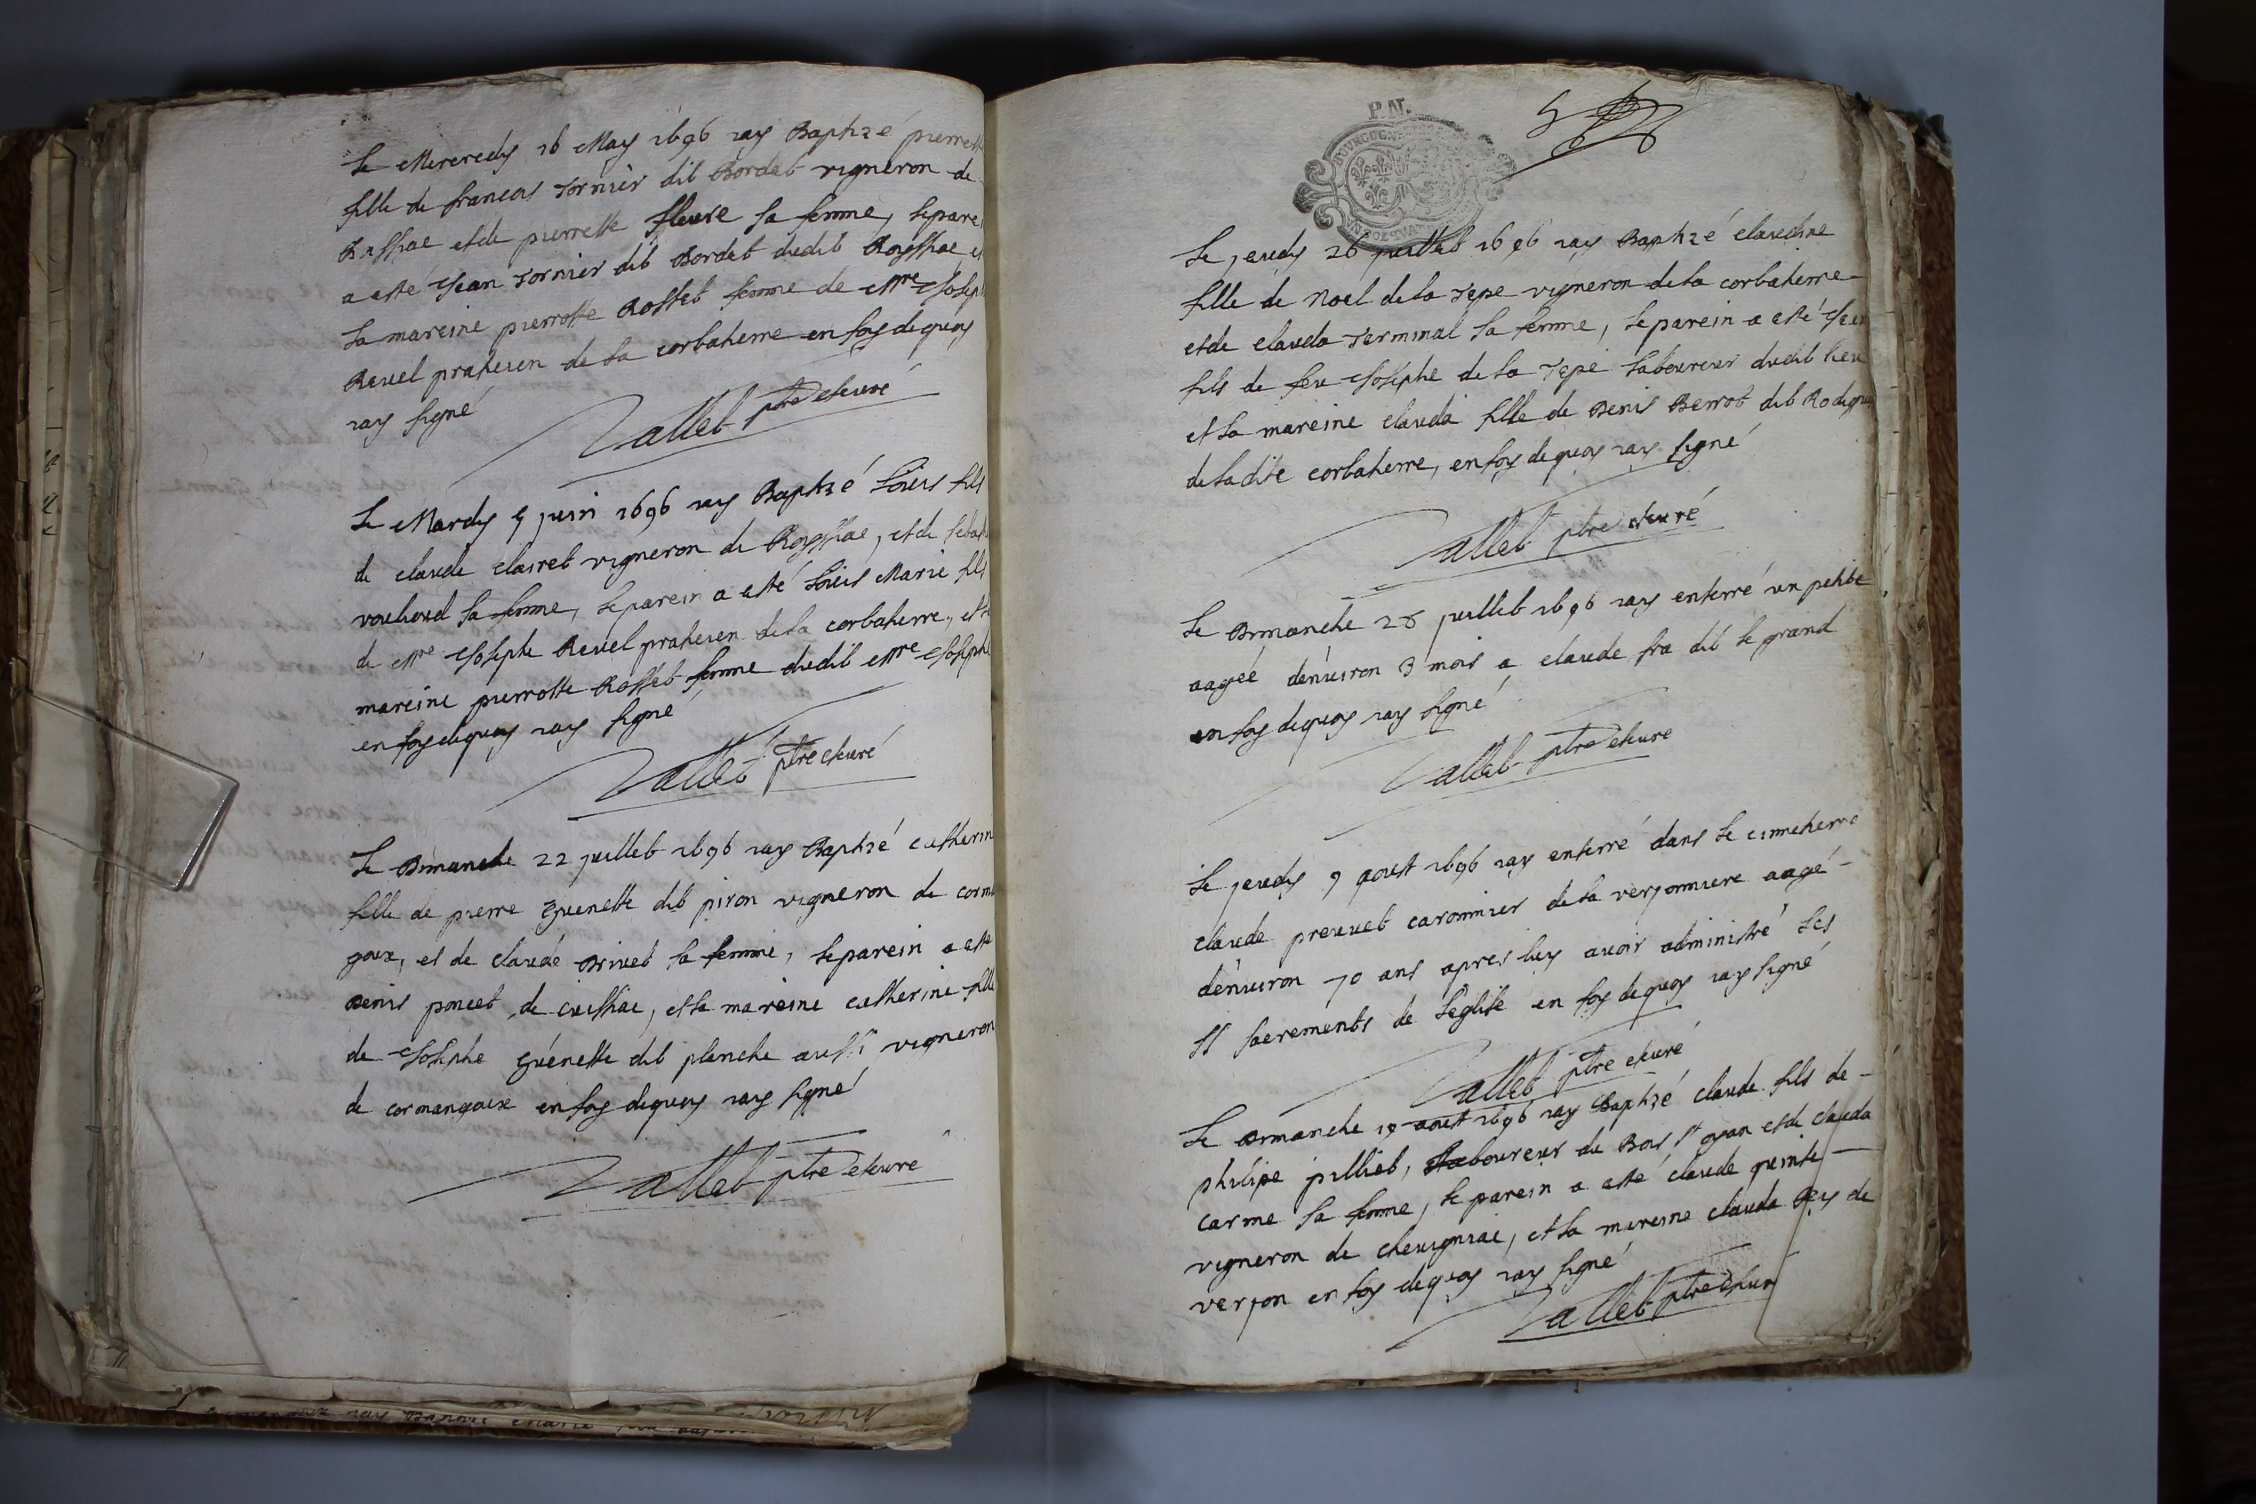 Le Mercredy 16 May 1696 iay Baptizé pierrette
fille de francois Tornier dit Bordat vigneron de
Rossiac et de pierrette fleure sa femme, le parein
a esté Jean Tornier dit Bordat dudit Royssiac et
la mareine pierrotte Rosset femme de Mre Joseph
Revel praticien de la corbatiere en foy de quoy
iay signé
Vallet ptre et curé
Le Mardy 5 juin 1696 iay Baptizé Loüis fils
de claude clairet vigneron de Royssiac, et de
vouhoud sa femme, le parein a esté Loüis Marie fils
de Mre Josephe Revel praticien de la corbatiere, et la
mareine pierrotte Rosset femme dudit Mre Josephe
en foy de quoy iay signé
Vallet ptre et curé
Le Dimanche 22 juillet 1696 iay Baptizé catherine
fille de pierre Guenette dit piron vigneron de corman
goux, et de claude Brivet sa femme, le parein a esté
Denis poncet de cuissiac, et la mareine catherine fille
de Josephe Guénette dit planche aussi vigneron
de cormangoux en foy de quoy iay signé
Vallet ptre et curé
P.N.
BOURGOGNE
Le jeudy 26 juillet 1696 iay Baptizé claudine
fille de noel de la Tepe vigneron de la corbatiere
et de clauda Terminal sa femme, le parein a esté Jean
fils de feu Josephe de la Tepe laboureur dudit lieu
et la mareine clauda fille de Denis Berrot dit Rodigue
de ladite corbatiere, en foy de quoy iay signé
Vallet ptre et curé
Le Dimanche 28 juillet 1696 iay enterré un petite
aagée d'enuiron 3 mois a claude fra dit le grand
en foy de quoy iay signé
Vallet ptre et curé
Le jeudy 9 aoust 1696 iay enterré dans le cimetierre
claude preuuet caronnier de la verjonniere aagé
d'enuiron 70 ans apres luy avoir administré les
St sacrements de l'eglise en foy de quoy iay signé
Vallet ptre et curé
Le Dimanche 19 aoust 1696 iay Baptizé claude fils de
philipe juilliet, laboureur du Bois St oyan et de clauda
carme sa femme, le parein a esté claude quinte
vigneron de cheuigniac, et la mareine clauda Rey de
verjon en foy de quoy iay signé
Vallet ptre et curé